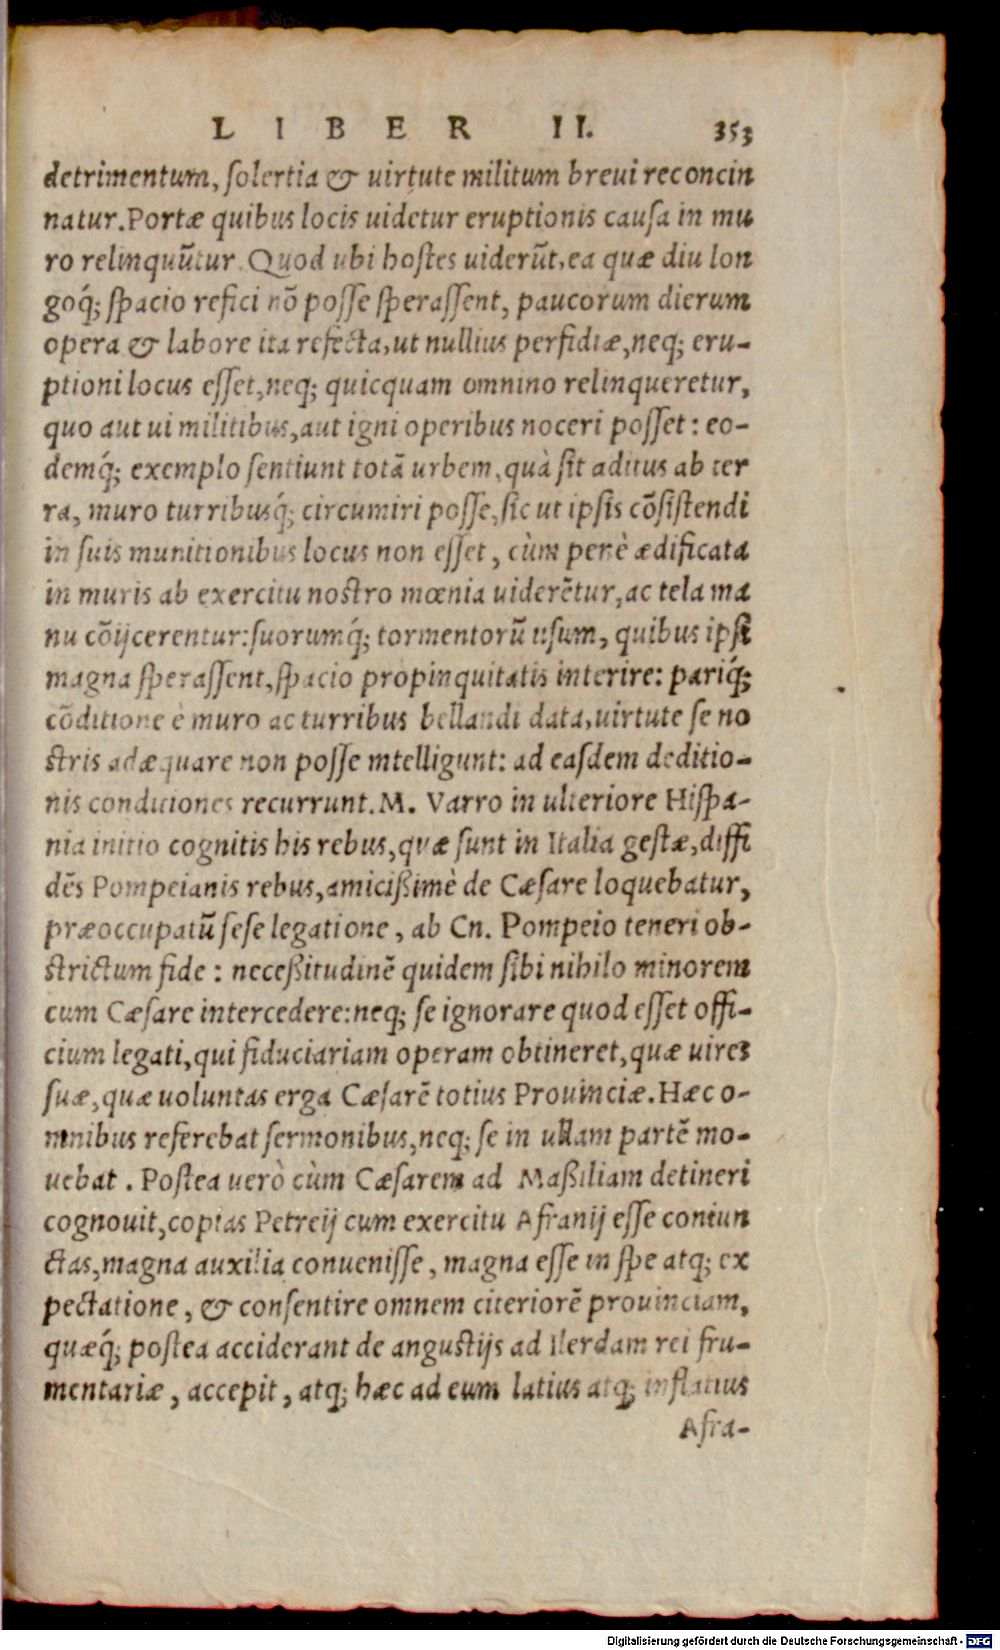 LIBER II. 353
detrimentum, ſolertia & uirtute militum breui reconcin
natur. Portæ quibus locis uidetur eruptionis cauſa in mu
ro relinquūtur. Quod ubi hoſtes uiderūt, ea quæ diu lon
goq́; ſpacio refici nō poſſe ſperaſſent, paucorum dierum
opera & labore ita refecta, ut nullius perfidiæ, neq; eru-
ptioni locus eſſet, neq; quicquam omnino relinqueretur,
quo aut ui militibus, aut igni operibus noceri poſſet: eo-
demq́; exemplo ſentiunt totā urbem, quà ſit aditus ab ter
ra, muro turribusq́; circumiri poſſe, ſic ut ipſis cōſiſtendi
in ſuis munitionibus locus non eſſet, cùm penè ædificata
in muris ab exercitu noſtro mœnia uiderētur, ac tela ma
nu cōijcerentur: ſuorumq́; tormentorū uſum, quibus ipſi
magna ſperaſſent, ſpacio propinquitatis interire: pariq́;
cōditione è muro ac turribus bellandi data, uirtute ſe no
ſtris adæquare non poſſe intelligunt: ad eaſdem deditio-
nis conditiones recurrunt. M. Varro in ulteriore Hiſpa-
nia initio cognitis his rebus, quæ ſunt in Italia geſtæ, diffi
dēs Pompeianis rebus, amicißimè de Cæſare loquebatur,
præoccupatū ſeſe legatione, ab Cn. Pompeio teneri ob-
ſtrictum fide: neceßitudinē quidem ſibi nihilo minorem
cum Cæſare intercedere: neq; ſe ignorare quod eſſet offi-
cium legati, qui fiduciariam operam obtineret, quæ uires
ſuæ, quæ uoluntas erga Cæſarē totius Prouinciæ. Hæc o-
mnibus referebat ſermonibus, neq; ſe in ullam partē mo-
uebat. Poſtea uerò cùm Cæſarem ad Maßiliam detineri
cognouit, copias Petreij cum exercitu Afranij eſſe coniun
ctas, magna auxilia conueniſſe, magna eſſe in ſpe atq; ex
pectatione, & conſentire omnem citeriorē prouinciam,
quæq́; poſtea acciderant de anguſtijs ad Ilerdam rei fru-
mentariæ, accepit, atq; hæc ad eum latius atq; inflatius
Afra-
Digitalisierung gefördert durch die Deutsche Forschungsgemeinschaft - DFG